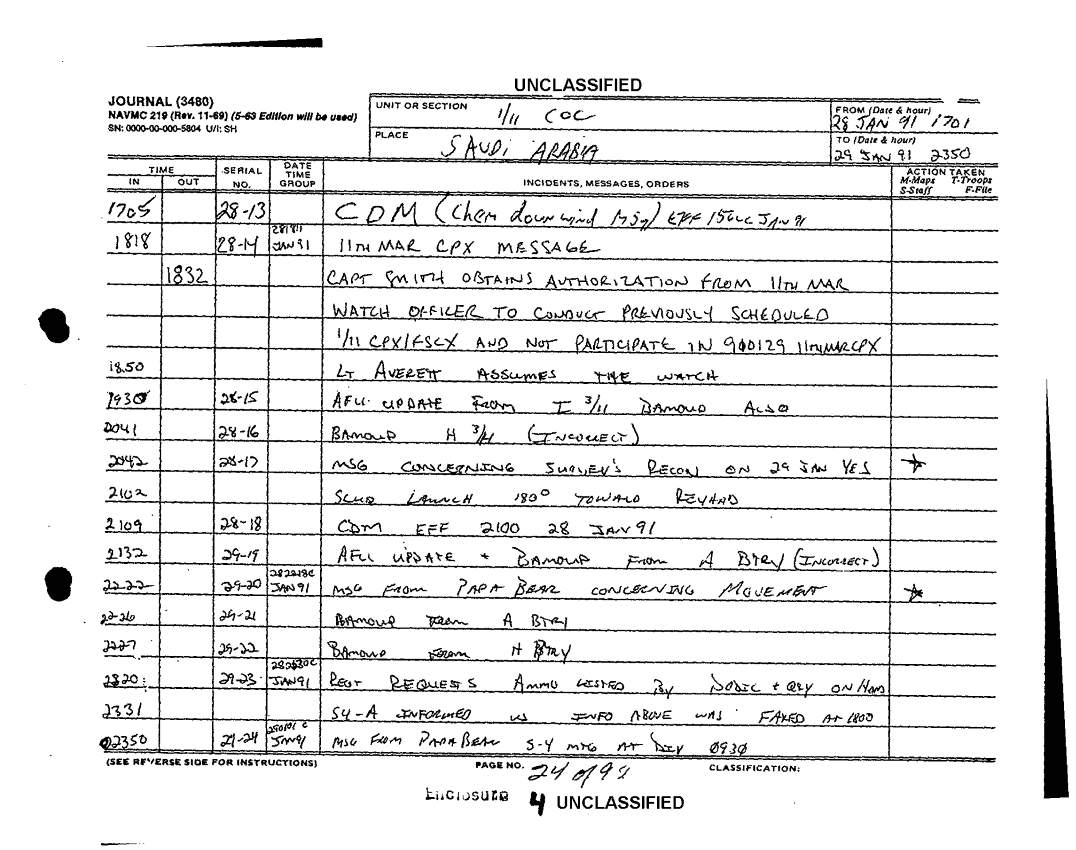 UNCLASSIFIED
JOURNAL (3480)
NAVMC 219 (Rev. 11-69) (5-63 Edition will be used)
SN: 0000-00-000-5804 U/I: SH
UNIT OR SECTION 1/11 COC
PLACE SAUDI ARABIA
FROM (Date & hour) 28 JAN 91 1701
TO (Date & hour) 29 JAN 91 2350
TIME IN OUT SERIAL NO. DATE TIME GROUP INCIDENTS, MESSAGES, ORDERS ACTION TAKEN M-Maps T-Troops S-Staff F-File
1705 28-13 CDM (Chem downwind Msg) EFF JAN 91
1818 28-14 281811 JAN 91 11TH MAR CPX MESSAGE
1832 CAPT SMITH OBTAINS AUTHORIZATION FROM 11TH MAR
WATCH OFFICER TO CONDUCT PREVIOUSLY SCHEDULED
1/11 CPX/FSCX AND NOT PARTICIPATE IN 900129 11THMARCPX
1850 LT AVERETT ASSUMES THE WATCH
1930 28-15 AFU UPDATE From I 3/11 BAMOUP ALSO
2041 28-16 BAMOUP H 3/11 (INCORRECT)
2042 28-17 MSG CONCERNING SURVEY'S RECON ON 29 JAN YES
2102 SCUD LAUNCH 180° TOWARD
2109 28-18 CDM EFF 2100 28 JAN 91
2132 29-19 AFU UPDATE + BAMOUP From A BTRY (INCORRECT)
2222 29-20 282218C JAN91 MSG From PAPA BEAR CONCERNING MOVEMENT
2226 29-21 BAMOUP From A BTRY
2227 29-22 BAMOUP From H BTRY
29-23 JAN91 REGT REQUESTS AMMO LISTED By DODIC + QTY ON HAND
2331 S4-A INFORMED US INFO ABOVE WAS FAXED AT 1800
2350 29-24 JAN91 MSG FROM PAPA BEAR S-4 MTG AT DIV 0930
(SEE REVERSE SIDE FOR INSTRUCTIONS)
PAGE NO. 24 of
CLASSIFICATION:
ENCLOSURE 4 UNCLASSIFIED